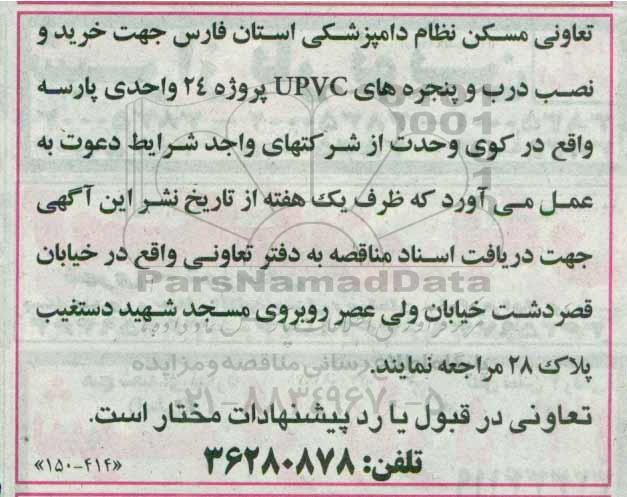 تعاونی مسکن نظام دامپزشکی استان فارس جهت خرید و
نصب درب و پنجره های UPVC پروژه ۲۴ واحدی پارسه
واقع در کوی وحدت از شرکتهای واجد شرایط دعوت به
عمل می آورد که ظرف یک هفته از تاریخ نشر این آگهی
جهت دریافت اسناد مناقصه به دفتر تعاونی واقع در خیابان
ParsNamadData
قصردشت خیابان ولی عصر روبروی مسجد شهید دستغیب
پلاک ۲۸ مراجعه نمایند.
۰۲۱-۸۸۳۴۹۶۷۰-۵
تعاونی در قبول یا رد پیشنهادات مختار است.
تلفن: ۳۶۲۸۰۸۷۸
«۱۵۰-۴۱۴»